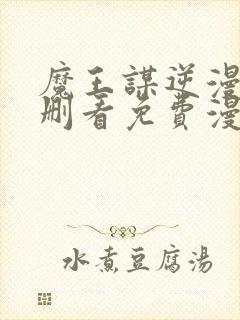 魔王謀逆漫
刪看免費漫
水煮豆腐湯